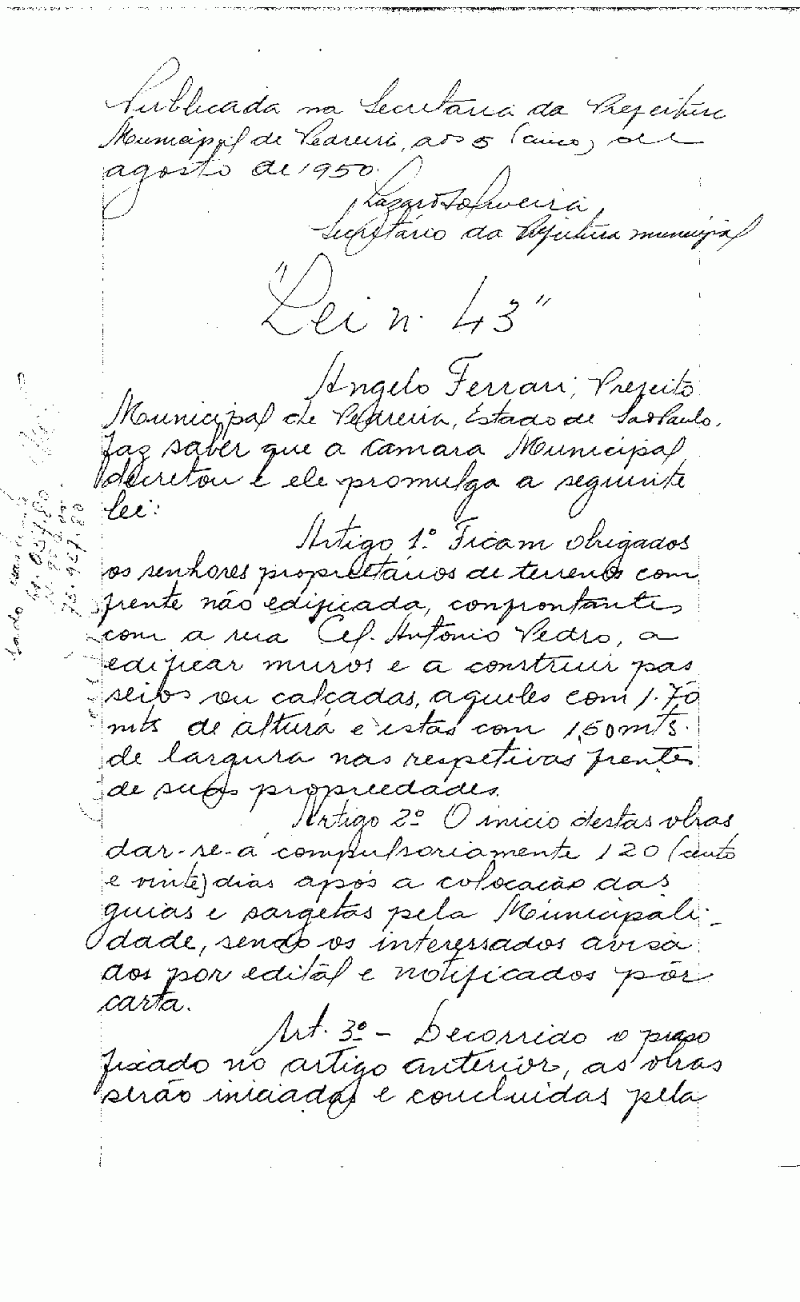 Publicada na Secretaria da Prefeitura
Municipal de Pedreira, aos 5 (cinco) de
agosto de 1950.
Lazaro Silveira
Secretário da Prefeitura municipal
"Lei n. 43"
Angelo Ferrari, Prefeito
Municipal de Pedreira, Estado de São Paulo,
faz saber que a camara Municipal
decretou e ele promulga a seguinte
lei:
Artigo 1º Ficam obrigados
os senhores proprietários de terrenos com
frente não edificada, confrontantes
com a rua Cel. Antonio Pedro, a
edificar muros e a construir pas
seios ou calçadas, aqueles com 1.70
mts de altura e estas com 1,50 mts.
de largura nas respetivas frentes
de suas propriedades.
Artigo 2º O inicio destas obras
dar-se-á compulsoriamente 120 (cento
e vinte) dias após a colocação das
guias e sargetas pela Municipali-
dade, sendo os interessados avisa
dos por edital e notificados por
carta.
Art. 3º - Decorrido o praso
fixado no artigo anterior, as obras
serão iniciadas e concluidas pela
73.927.80